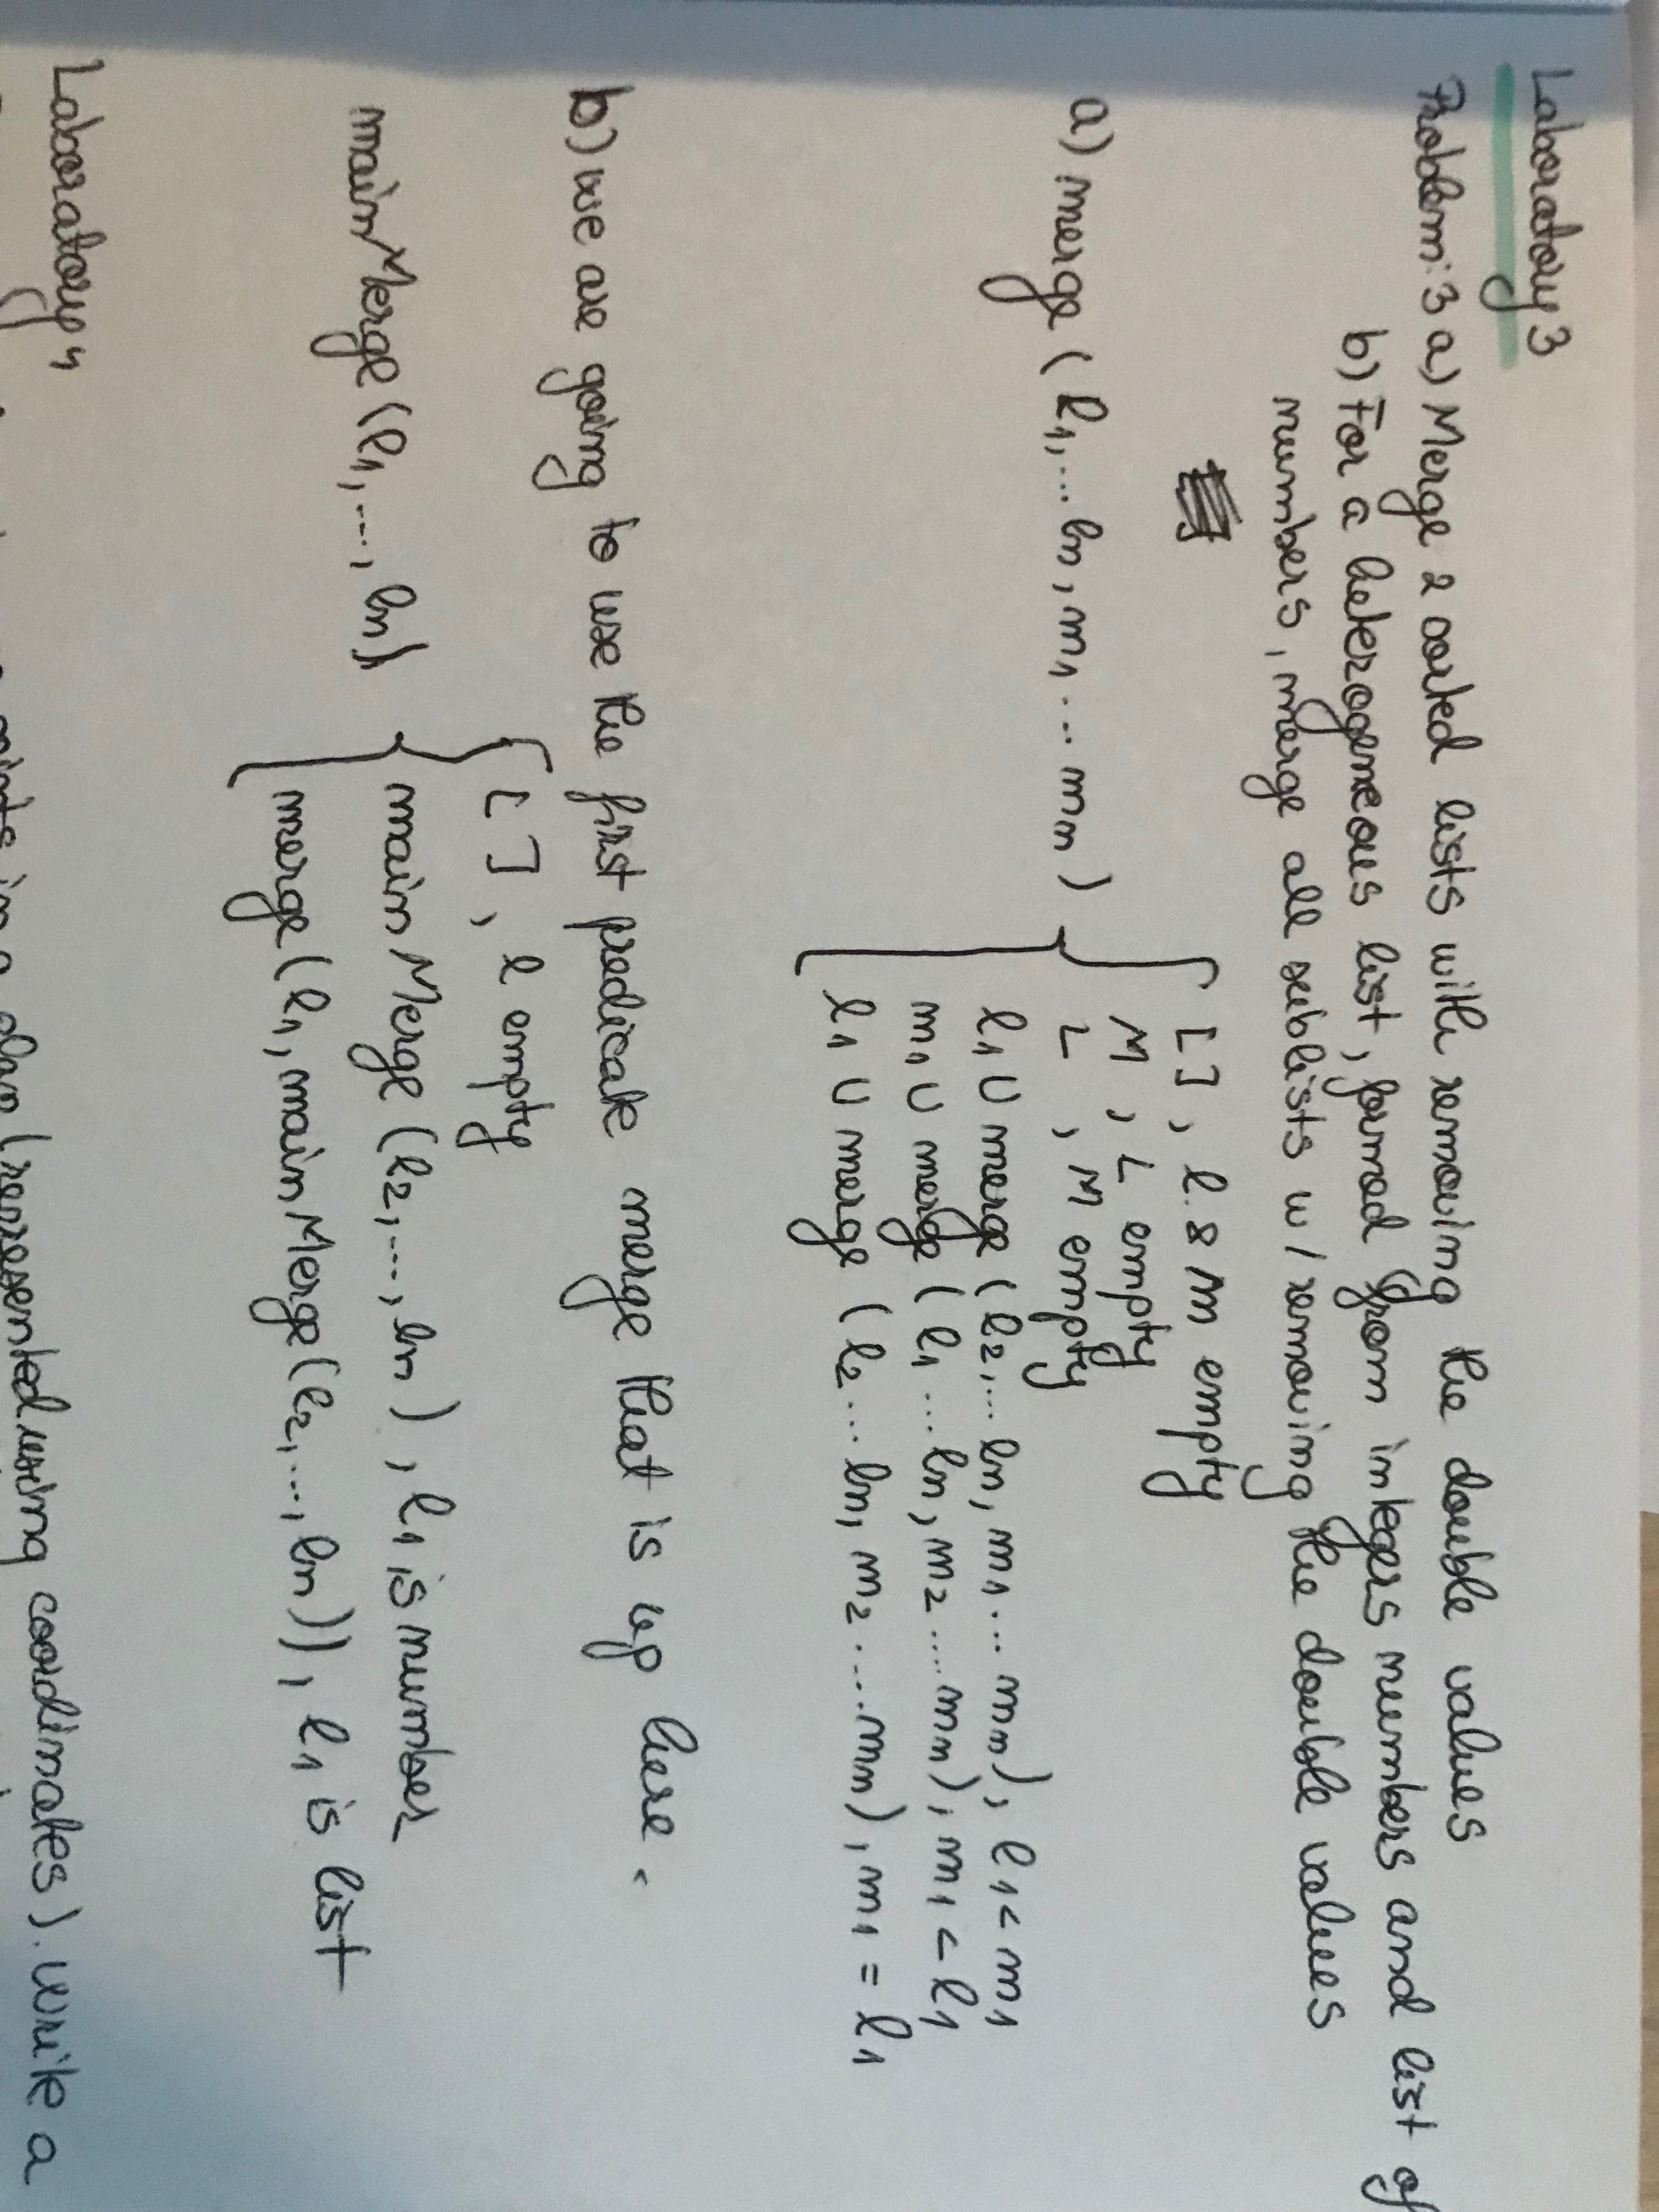 Laboratory 3
Problem: 3 a) Merge 2 sorted lists with removing the double values
b) For a heterogeneous list, formed from integers numbers and list of
numbers, merge all sublists w/ removing the double values
a) merge (l1,...ln, m1...mn)
[], l & m empty
M, L empty
L, M empty
l1 U merge (l2,...ln, m1...mn), l1 < m1
m1 U merge (l1...ln, m2....mn), m1 < l1
l1 U merge (l2...ln, m2....mn), m1 = l1
b) we are going to use the first predicate merge that is up here.
mainMerge (l1,...,ln)
[], l empty
mainMerge (l2,...,ln), l1 is number
merge (l1, mainMerge (l2,...,ln)), l1 is list
Laboratory 4
plan (represented using coordinates). Write a